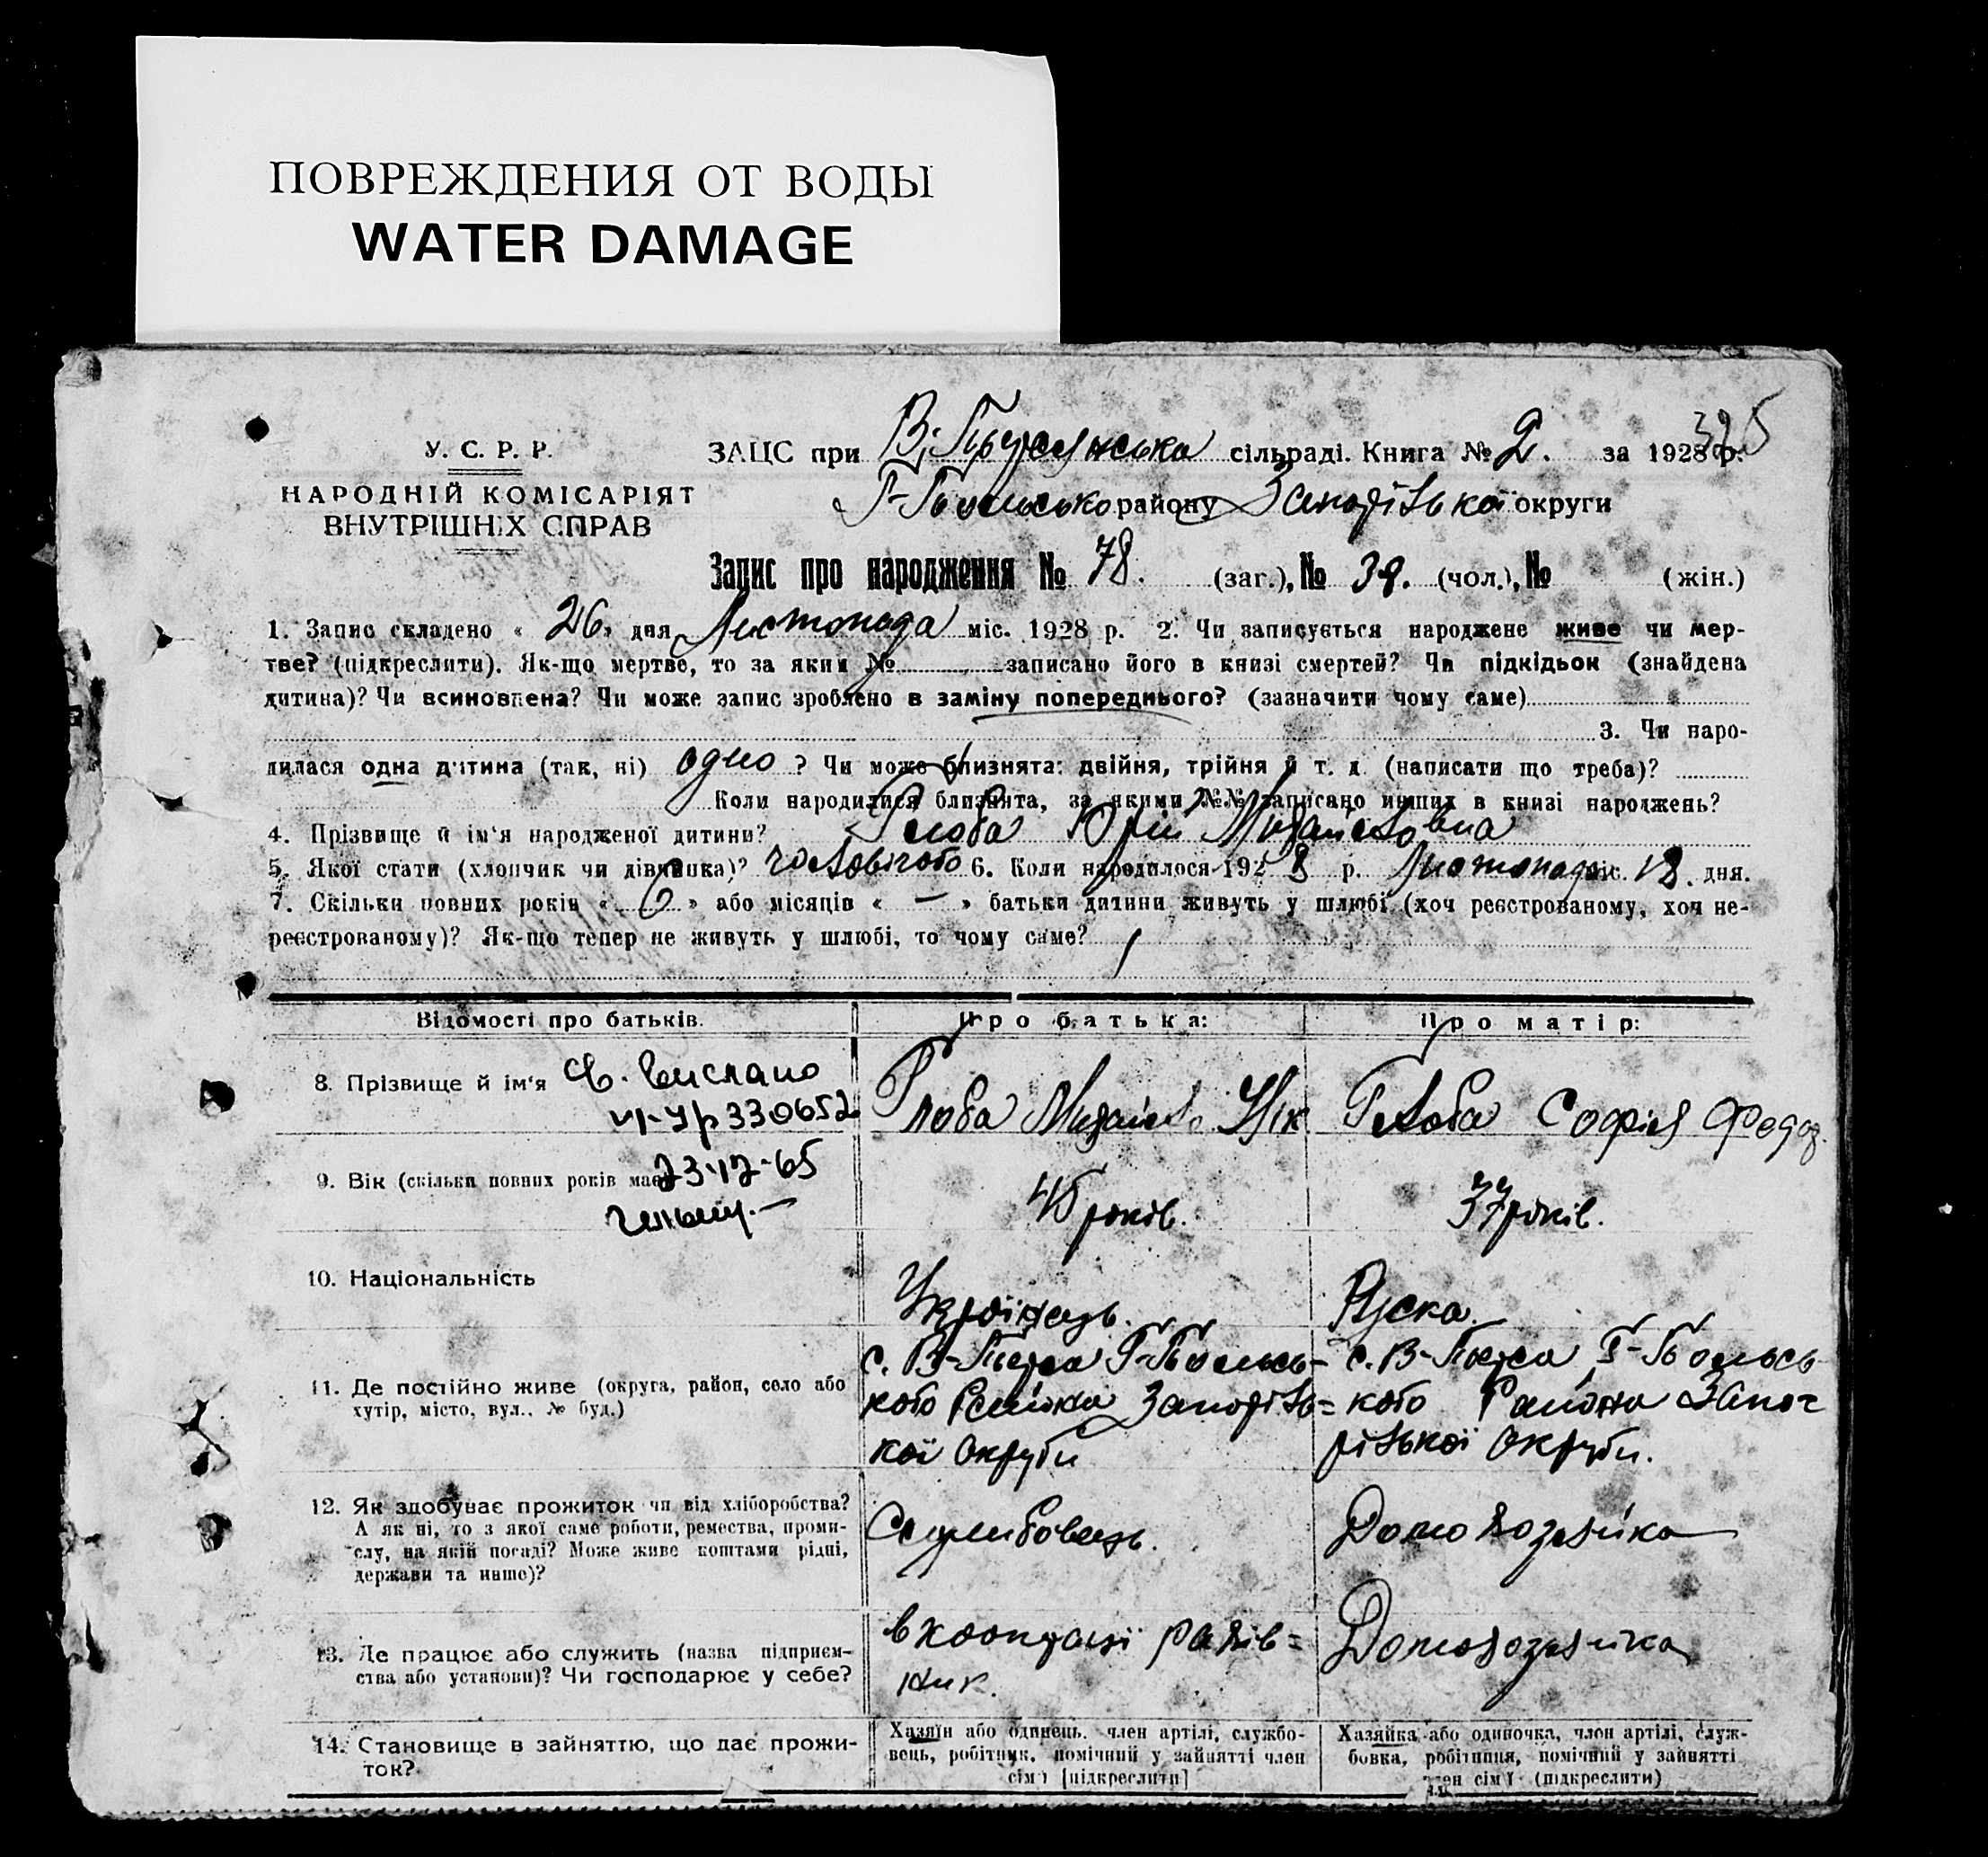 ПОВРЕЖДЕНИЯ ОТ ВОДЫ
WATER DAMAGE
325
У. С. Р. Р.
НАРОДНІЙ КОМІСАРІЯТ
ВНУТРІШНІХ СПРАВ
ЗАЦС при В. сільраді. Книга № 2. за 1928 р.
району округи
Запис про народження № 78. (заг.), № 39. (чол.), № (жін.)
1. Запис складено « 26 » дня Листопада міс. 1928 р. 2. Чи записується народжене живе чи мер-
тве? (підкреслити). Як-що мертве, то за яким № записано його в книзі смертей? Чи підкідьок (знайдена
дитина)? Чи всиновлена? Чи може запис зроблено в заміну попереднього? (зазначити чому саме)
3. Чи наро-
дилася одна дитина (так, ні) одно ? Чи може близнята: двійня, трійня й т. д. (написати що треба)?
Коли народилися близнята, за якими №№ записано инших в книзі народжень?
4. Прізвище й ім'я народженої дитини? Глоба Юрій
5. Якої стати (хлопчик чи дівчинка)? 6. Коли народилося 1928 р. Листопада міс. 18. дня.
7. Скільки повних років « 0 » або місяців « — » батьки дитини живуть у шлюбі (хоч реєстрованому, хоч не-
реєстрованому)? Як-що тепер не живуть у шлюбі, то чому саме?
Відомості про батьків. Про батька: Про матір:
8. Прізвище й ім'я Св. вислано
330652
Глоба Михайло Нік Глоба Софія Федор.
9. Вік (скільки повних років має) 23-12-65
45 років. 37 років.
10. Національність
Українець. Руска.
11. Де постійно живе (округа, район, село або
хутір, місто, вул., № буд.)
кого Району
кої Округи
кого Району Запо=
різької Округи.
12. Як здобуває прожиток чи від хліборобства?
А як ні, то з якої саме роботи, ремества, проми-
слу, на якій посаді? Може живе коштами рідні,
держави та инше)?
Службовець. Домохозяйка
13. Де працює або служить (назва підприєм-
ства або установи)? Чи господарює у себе?
в кооперації рахів=
ник.
Домохозяйка
14. Становище в зайняттю, що дає прожи-
ток?
Хазяїн або одинець, член артілі, службо-
вець, робітник, помічний у зайнятті член
сім'ї [підкреслити]
Хазяйка або одиночка, член артілі, служ-
бовка, робітниця, помічний у зайнятті
член сім'ї (підкреслити)